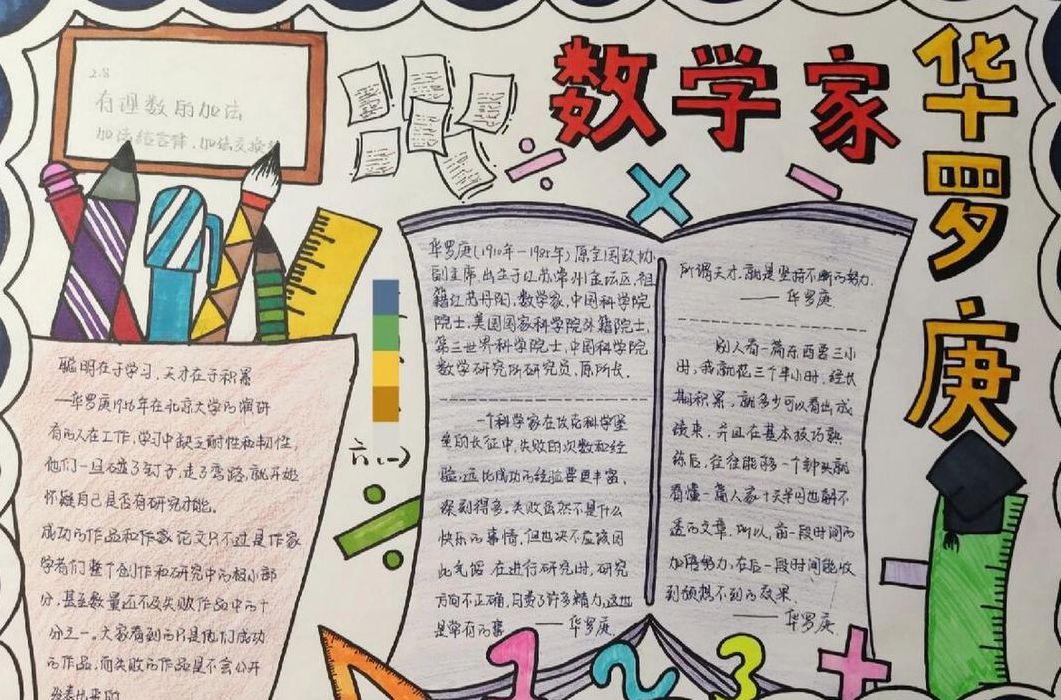 数学家
华罗庚
2.8
有理数的加法
加法结合律.加法交换
六(一)
聪明在于学习,天才在于积累
—华罗庚1956年在北京大学的演讲
有的人在工作,学习中缺乏耐性和韧性,
他们一旦碰了钉子,走了弯路,就开始
怀疑自己是否有研究才能。
成功的作品和作家论文只不过是作家
学者们整个创作和研究中的极小部
分,甚至数量还不及失败作品中的十
分之一。大家看到的只是他们成功
的作品,而失败的作品是不会公开
华罗庚(1910年—1985年)原全国政协
副主席,出生于江苏常州金坛区,祖
籍江苏丹阳,数学家,中国科学院
院士,美国国家科学院外籍院士,
第三世界科学院士,中国科学院
数学研究所研究员,原所长.
一个科学家在攻克科学堡
垒的长征中,失败的次数和经
验,远比成功的经验要更丰富,
深刻得多。失败虽然不是什么
快乐的事情,但也决不应该因
此气馁.在进行研究时,研究
方向不正确,白费了许多精力,这也
是常有的事 —华罗庚
所谓天才,就是坚持不断的努力.
—华罗庚
别人看一篇东西要三小
时,我就花三个半小时.经长
期积累,就多少可以看出成
绩来,并且在基本技巧熟
练后,往往能够一个钟头就
看懂一篇人家十天半月也解不
透的文章,所以,前一段时间的
加倍努力,在后一段时间能收
到预想不到的效果.
—华罗庚
1 2 3